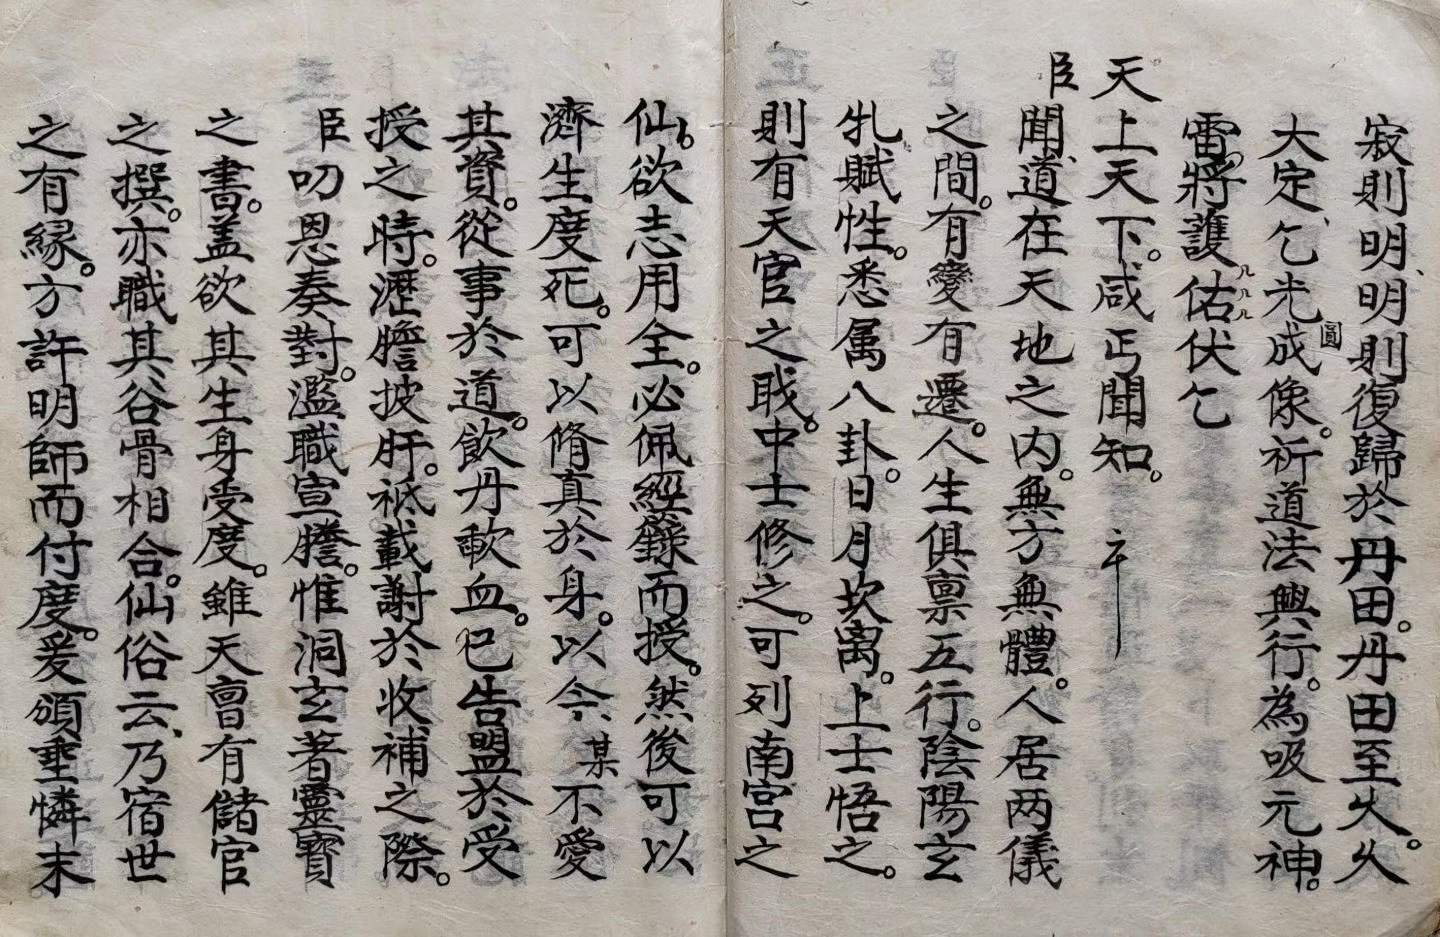 寂則明、明則復歸於丹田。丹田至火。火
大定、乞光成像。祈道法興行。為吸元神。
圓
雷。將護佑伏乞
天上天下。咸丐聞知。
臣聞、道在天地之內。無方無體。人居两儀
之間。有變有遷。人生俱禀五行。陰陽玄
牝賦性。悉属八卦。日月坎离。上士悟之。
則有天官之戝。中士修之。可列南宮之
仙。欲志用全。必佩經籙而授。然後可以
濟生度死。可以脩真於身。以今某不愛
其資。從事於道。飲丹歃血。已告盟於受
授之時。瀝膽披肝。祗載謝於收補之際。
臣叨恩奏對。濫職宣謄。惟洞玄著靈寶
之書。盖欲其生身受度。雖天曹有儲官
之撰。亦職其谷骨相合。仙俗云、乃宿世
之有緣。方許明師而付度。爰頒垂憐末